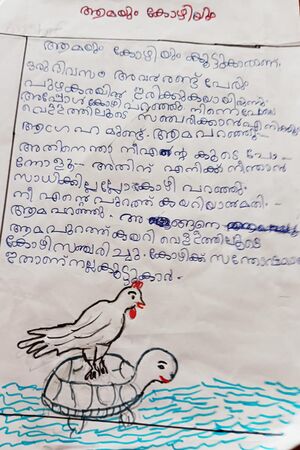 ആമയും കോഴിയും
ആമയും കോഴിയും കൂട്ടുകാരാണ്.
ഒരു ദിവസം അവർ രണ്ട് പേരും
പുഴകരയിൽ ഇരിക്കുകയായിരുന്നു.
അപ്പോൾ കോഴി പറഞ്ഞു നിന്നെ പോലെ
വെള്ളത്തിലൂടെ സഞ്ചരിക്കാൻ എനിക്കും
ആഗ്രഹമുണ്ട്. ആമ പറഞ്ഞു.
അതിനെന്താ നീ എന്റെ കൂടെ പോ
ന്നോളു. അതിന് എനിക്ക് നീന്താൻ
സാധിക്കില്ലപ്പോ കോഴി പറഞ്ഞു.
നീ എന്റെ പുറത്ത് കയറിയാൽമതി.
ആമ പറഞ്ഞു. അങ്ങനെ
ആമപുറത്ത് കയറി വെള്ളത്തിലൂടെ
കോഴി സഞ്ചരിച്ചു. കോഴിക്ക്
ഇതാണ് നല്ല കൂട്ടുകാർ.